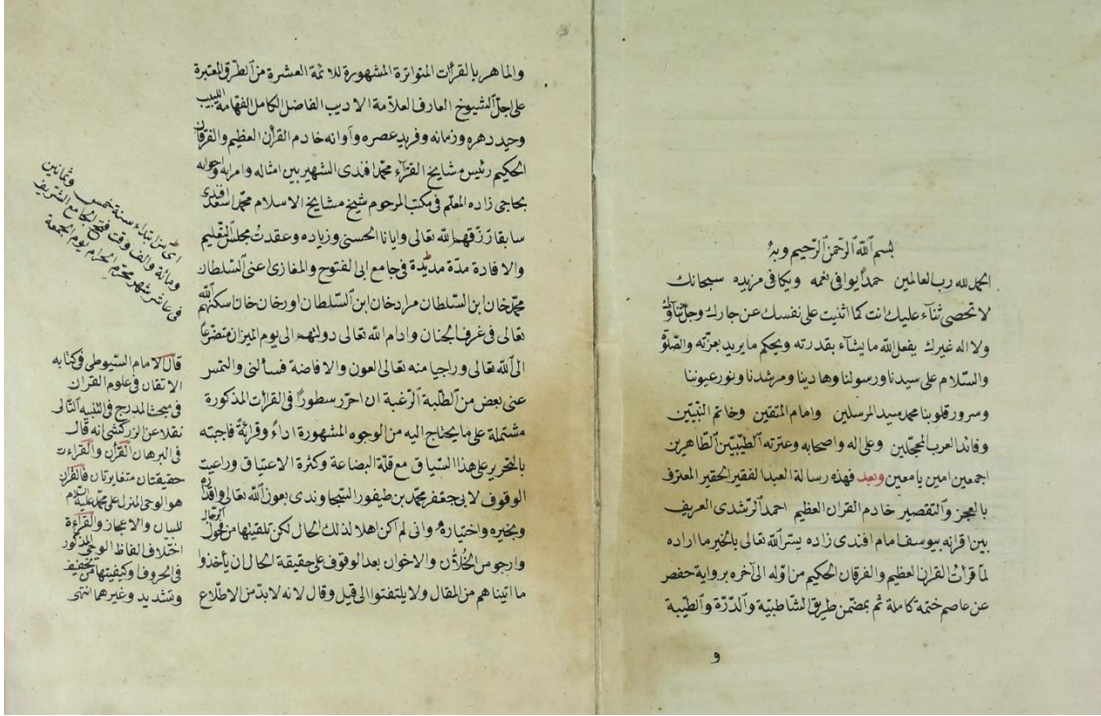 بسم الله الرحمن الرحيم وبه
الحمد لله رب العالمين حمدا يوافى نعمه ويكافى مزيده سبحانك
لا تحصى ثناء عليك انت كما اثنيت على نفسك عز جارك وجل ثناؤك
ولا اله غيرك يفعل الله ما يشاء بقدرته ويحكم ما يريد بعزته والصلوة
والسلام على سيدنا ورسولنا وهادينا ومرشدنا ونور عيوننا
وسرور قلوبنا محمد سيد المرسلين وامام المتقين وخاتم النبيين
وقائد العرب المحجلين وعلى اله واصحابه وعترته الطيبين الطاهرين
اجمعين امين يا معين وبعد فهذه رسالة العبد الفقير الحقير المعترف
بالعجز والتقصير خادم القران العظيم احمد الرشدى العريف
بين اقرانه بيوسف امام افندى زاده يسر الله تعالى بالخير ما اراده
لما قرأت القران العظيم والفرقان الحكيم من اوله الى آخره برواية حفص
عن عاصم ختمة كاملة ثم بمضمن طريق الشاطبية والدرة والطيبة
و
والماهر بالقرأت المتواترة المشهورة للائمة العشرة من الطرق المعتبرة
على اجل الشيوخ العارف العلامة الاديب الفاضل الكامل الفهامة اللبيب
وحيد دهره وزمانه وفريد عصره وآوانه خادم القرآن العظيم والفرقان
الحكيم رئيس مشايخ القرآء محمد افندى الشهير بين امثاله وامرائه
بحاجى زاده المعلم فى مكتب المرحوم شيخ مشايخ الاسلام محمد اسعد افندى
سابقا رزقهما الله تعالى وايانا الحسنى وزياده وعقدت مجلس التعليم
والافادة مدة مديدة فى جامع ابى الفتوح والمغازى اعنى السلطان
محمد خان ابن السلطان مراد خان ابن السلطان اورخان خان سكنهم الله
تعالى فى غرف الجنان وادام الله تعالى دولتهم الى يوم الميزان متضرعا
الى الله تعالى وراجيا منه تعالى العون والافاضة فسألنى والتمس
عنى بعض من الطلبة الرغبة ان احرر سطورا فى القرأت المذكورة
مشتملة على ما يحتاج اليه من الوجوه المشهورة اداء وقرائة فاجبته
بالتحرير على هذا السياق مع قلة البضاعة وكثرة الاعتياق وراعيت
الوقوف لابى جعفر محمد بن طيفور السجاوندى بعون الله تعالى واقداره
وبخيره واختياره وانى لم اكن اهلا لذلك الحال لكن تلقيتها من فحول الرجال
وارجو من الخلان والاخوان بعد الوقوف على حقيقة الحال ان يأخذوا
ما اتيناهم من المقال ولا يلتفتوا الى قيل وقال لانه لا بد من الاطلاع
اى من ابتداء سنة خمس وثمانين
ومائة والف وقت فتح الجامع الشريف
فى عاشر شهر محرم الحرام يوم الجمعة
قال الامام السيوطى فى كتابه
الاتقان فى علوم القران
فى مبحث المدرج فى التنبيه الثالى
نقلا عن الزركشى انه قال
فى البرهان القرآن والقراءت
حقيقتان متغايرتان فالقرآن
هو الوحى المنزل على محمد عليه السلام
للبيان والاعجاز والقراءة
اختلاف الفاظ الوحى المذكور
فى الحروف وكيفيتها من تخفيف
وتشديد وغيرهما انتهى